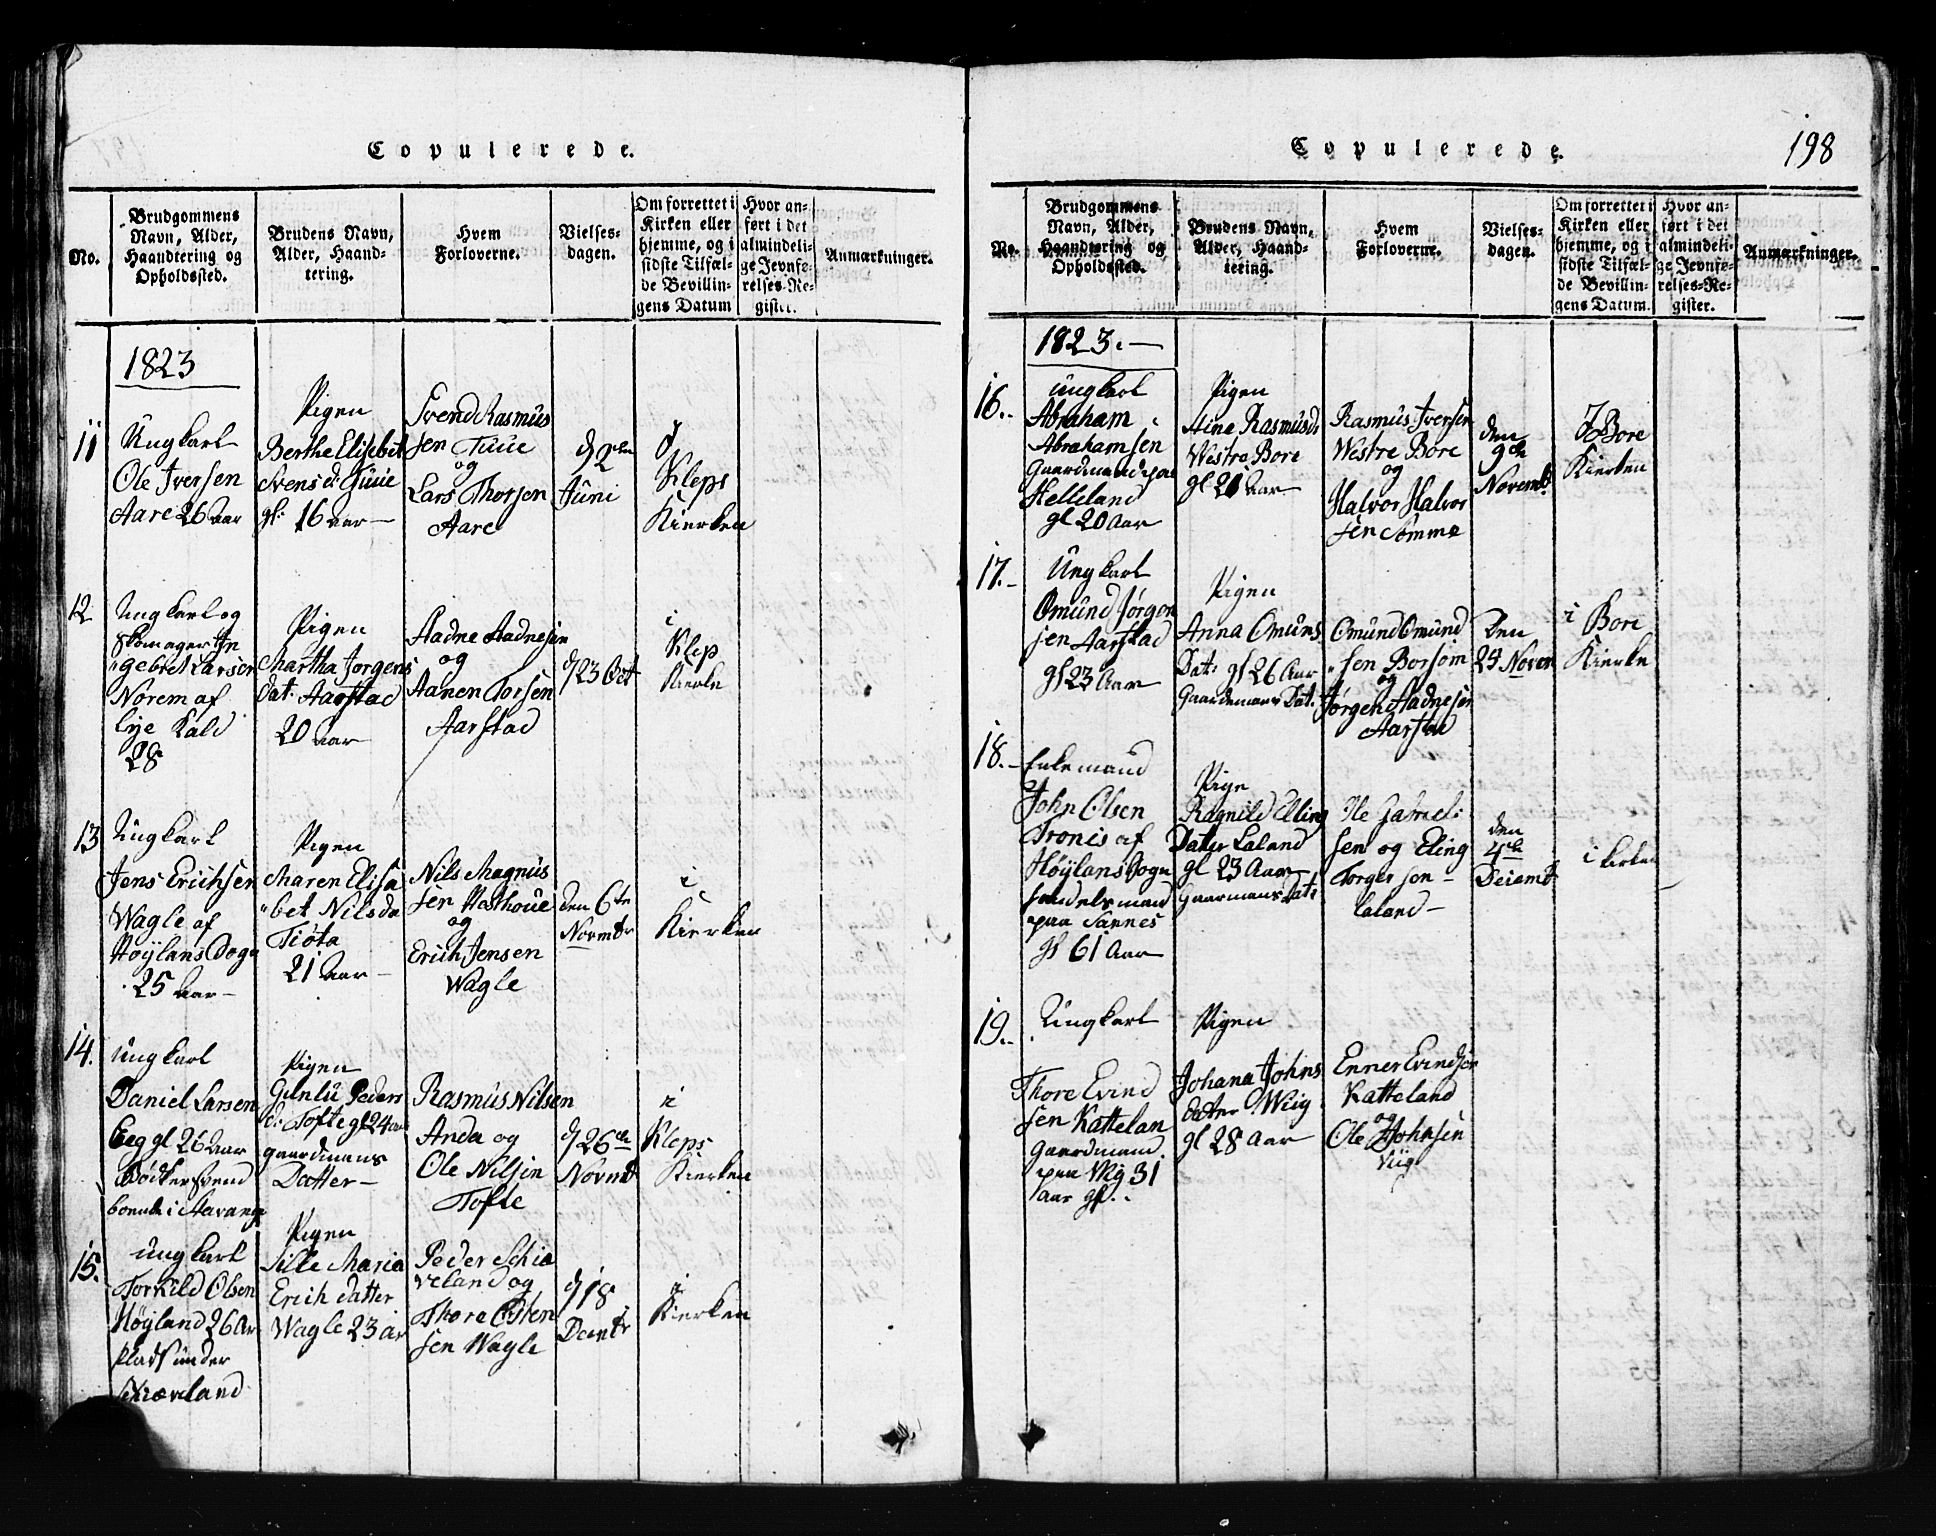 Copulerede.
No.
Brudgommens
Navn, Alder,
Haandtering og
Opholdssted.
Brudens Navn,
Alder, Haand-
tering.
Hvem
Forloverne.
Vielses-
dagen.
Om forrettet i
Kirken eller
hjemme, og i
sidste Tilfæl-
de Bevillin-
gens Datum
Hvor an-
ført i det
almindeli-
ge Jevnfø-
relses-Re-
gister.
Anmærkninger.
1823
11
Ungkarl
Ole Iversen
Aare 26 aar
Pigen
Berthe Elisebet
Svens d: Tuue
gl: 16 aar
Svend Rasmus
sen Tuue
og
Lars Thorsen
Aare
d 2den
Juni
i
Kleps
Kierken
12
Ungkarl og
Skomager In
gebret Larsen
Norem af
Lye Kald
28
Pigen
Martha Jørgens
dat: Aarstad
20 aar
Aadne Aadnesen
og
Aanen Torsen
Aarstad
d 23 Oct
i
Klep
Kierke
13
Ungkarl
Jens Erichsen
Wagle af
Høylans Sogn
25 aar
Pigen
Maren Elisa
bet Nilsda
Tiøta
21 aar
Nils Magnus
sen
og
Erich Jensen
Wagle
den 6te
Novmbr
i
Kierken
14.
Ungkarl
Daniel Larsen
Eeg gl 26 aar
Bødkersvend
boende i Stavange
Pigen
Gunlu Peders
d: Tofte gl 24 aar
gaardmans
Datter
Rasmus Nilsen
Anda og
Ole Nilsen
Tofte
d 26de
Novmb
i
Kleps
Kierken
15.
Ungkarl
Torkild Olsen
Høyland 26 Ar
Plads under
Schiæveland
Pigen
Sille Maria
Erich datter
Wagle 23 år
Peder Schiæ
veland og
Thore Osten
sen Wagle
d 18
Decmbr
i
Kierken
Copulerede.
198
No.
Brudgommens
Navn, Alder,
Haandtering og
Opholdssted.
Brudens Navn,
Alder, Haand-
tering.
Hvem
Forloverne.
Vielses-
dagen.
Om forrettet i
Kirken eller
hjemme, og i
sidste Tilfæl-
de Bevillin-
gens Datum.
Hvor an-
ført i det
almindeli-
ge Jevnfø-
relses-Re-
gister.
Anmærkninger.
1823.
16.
Ungkarl
Abraham
Abrahamsen
Gaardmand paa
Helleland
gl 20 Aar
Pigen
Stine Rasmusd:
Westre Bore
gl 21 Aar
Rasmus Iversen
Westre Bore
og
Halvor Halvor
sen Sømme
den
9de
Novemb
I Bore
Kierken
17.
Ungkarl
Omund Jørgen
sen Aarstad
gl 23 Aar
Pigen
Anna Omuns
Dat: gl 26 Aar
Gaardemans Dat:
Omund Omund
sen Borsøm
og
Jørgen Aadnesen
Aarstad
Den
24 Novem
i Bore
Kierke
18.
Enkemand
John Olsen
Tronis af
Høylans Sogn
Handelsmand
paa Sannes
gl 61 Aar
Pige
Ragnild Elling
Datter Laland
gl 23 Aar
Gaarmans Dat:
Ole Gabriel:
sen og Eling
Torgersen
Laland
den
4de
Desemb
i kirken
19.
Ungkarl
Thore Evind
sen Kattelan
Gaardmand
paa Wiig 31
aar gl.
Pigen
Johana Johns
datter Wiig
gl 28 Aar
Enner Evindsen
Katteland
og
Ole Johnsen
Viig